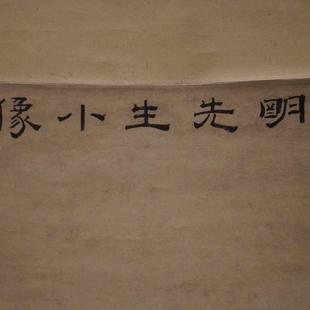 明先生小像